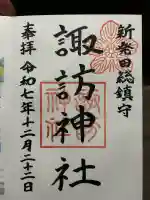 新発田総鎮守
諏訪神社
奉拝 令和七年十二月二十二日